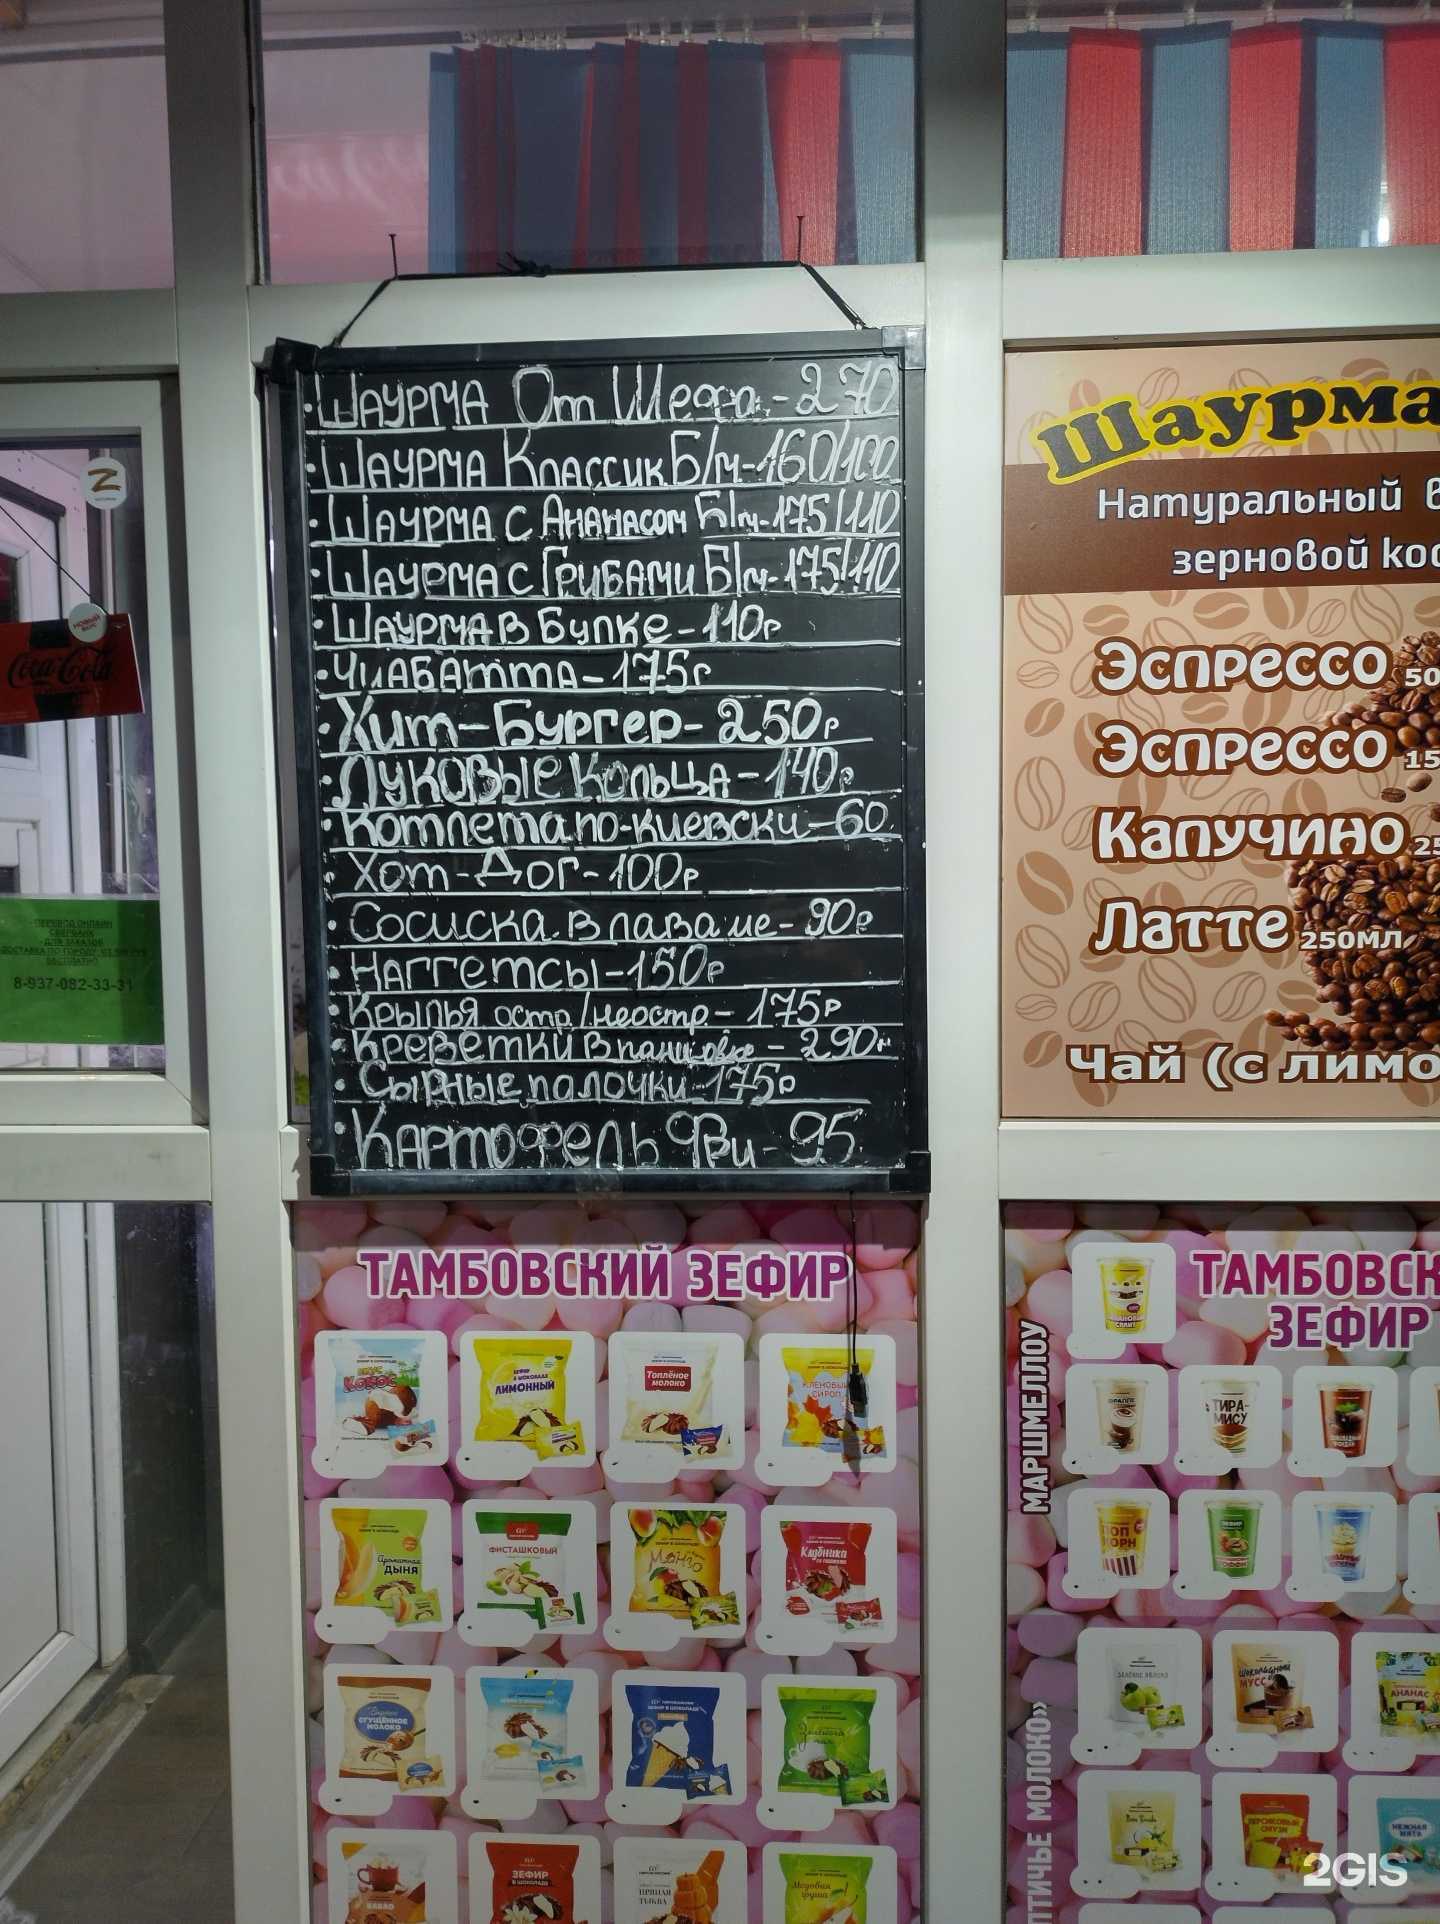 ·ШАУРМА От Шефа.-270
·ШАУРМА Классик Б/м-160/100
·ШАУРМА с Ананасом Б/м-175/110
·ШАУРМА с ГРИБАМИ Б/м-175/110
·ШАУРМА В Булке-110р
·ЧИАБАТТА-175р
·Хит-Бургер-250р
·Луковые Кольца-140р
·Котлета по-киевски-60
·Хот-Дог-100р
·Сосиска в лаваше-90р
·Наггетсы-150р
·Крылья остр/неостр-175р
·Креветки в панировке-290
·Сырные палочки 175р
·КАРТОФЕЛЬ ФРи-95
Z
НОВЫЙ
ВКУС
Coca-Cola
ПЕРЕВОД ОНЛАЙН
СБЕРБАНК
ДЛЯ ЗАКАЗОВ
БЕСПЛАТНО
8-937-082-33-31
Шаурма
Натуральный в
зерновой коф
Эспрессо 50
Эспрессо 15
Капучино 25
Латте 250мл
Чай (с лимо
ТАМБОВСКИЙ ЗЕФИР
КОКОС
ЗЕФИР
В ШОКОЛАДЕ
ЛИМОННЫЙ
Топлёное
молоко
КЛЕНОВЫЙ
СИРОП
Ароматная
ДЫНЯ
ФИСТАШКОВЫЙ
Манго
Клубника
СГУЩЁННОЕ
МОЛОКО
КАКАО
ЗЕФИР
В ШОКОЛАДЕ
ПРЯНАЯ
ТЫКВА
Медовая
груша
ТАМБОВСК
ЗЕФИР
МАРШМЕЛЛОУ
ТИРА-
МИСУ
ПОП
КОРН
ПТИЧЬЕ МОЛОКО»
ЗЕЛЁНОЕ ЯБЛОКО
ШОКОЛАДНЫЙ
МУСС
АНАНАС
ПЕРСИКОВЫЙ
СМУЗИ
НЕЖНАЯ
МЯТА
2GIS